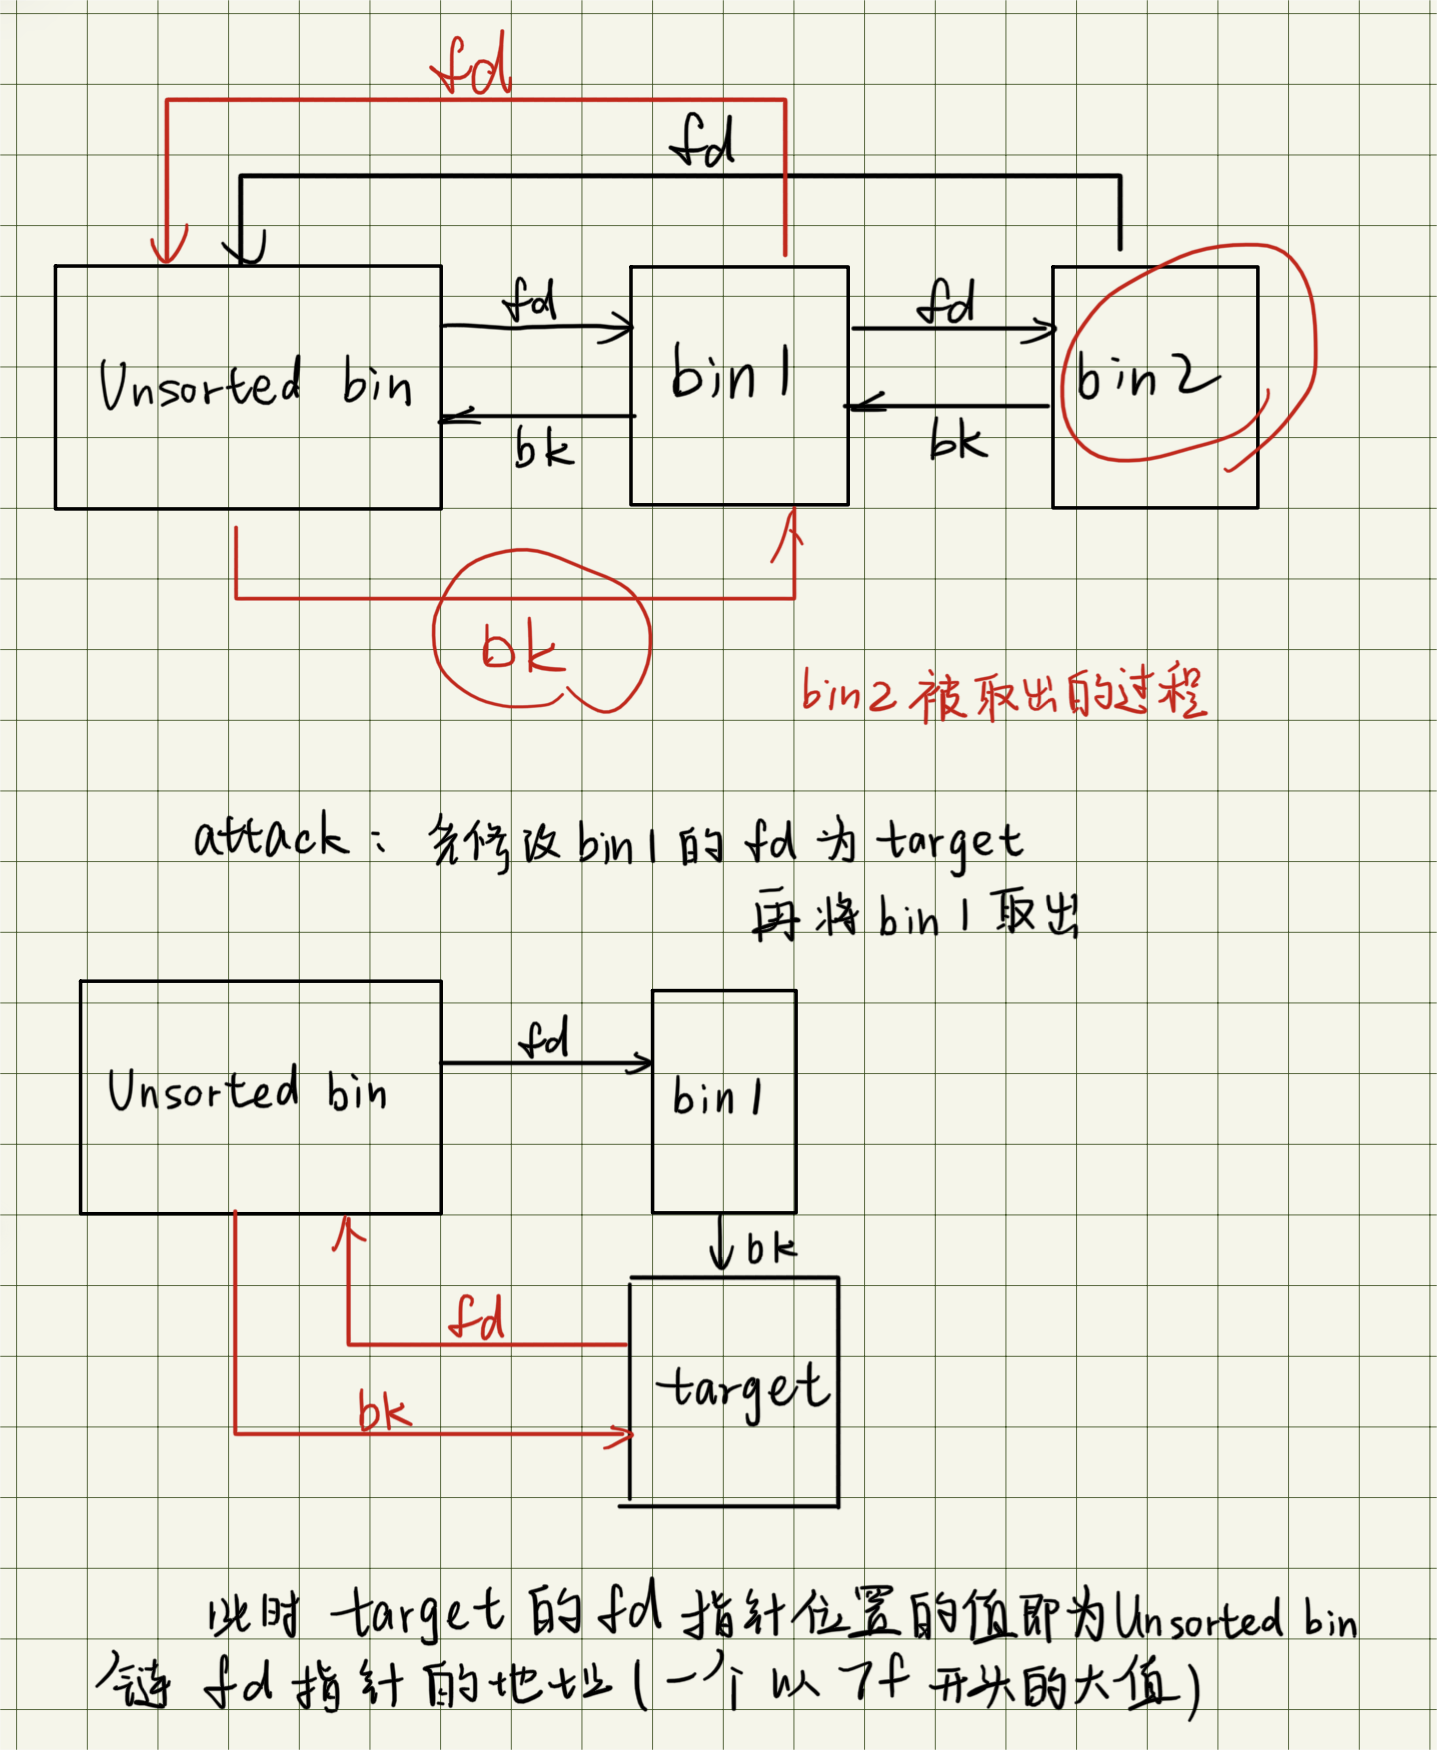 fd
fd
fd
fd
Unsorted bin
bin1
bin2
bk
bk
bk
bin2被取出的过程
attack: 先修改bin1的fd为target
再将bin1取出
Unsorted bin
fd
bin1
bk
fd
target
bk
此时target的fd指针位置的值即为Unsorted bin
链fd指针的地址(一个以7f开头的大值)